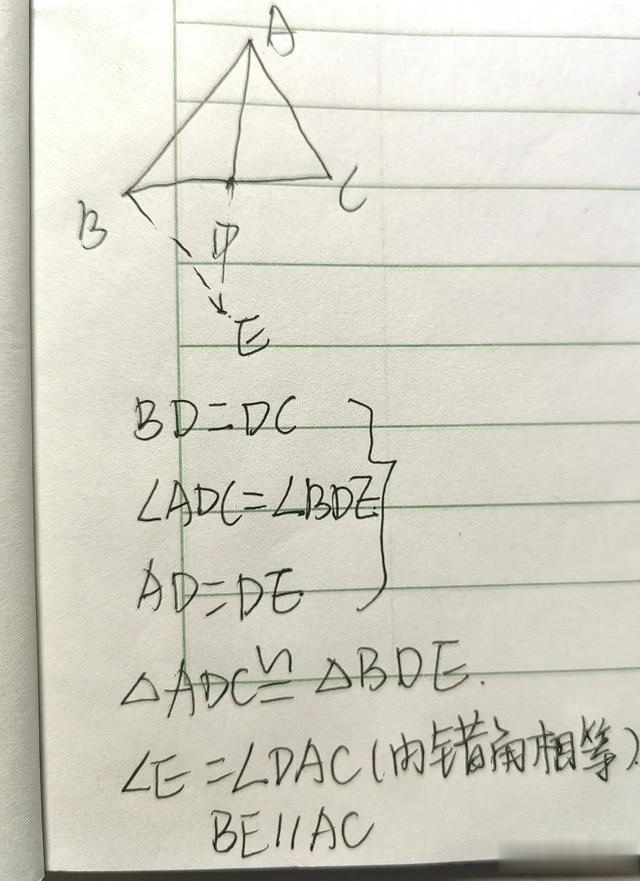 A
B
C
D
E
BD=DC
∠ADC=∠BDE
AD=DE
△ADC≌△BDE.
∠E=∠DAC(内错角相等)
BE//AC